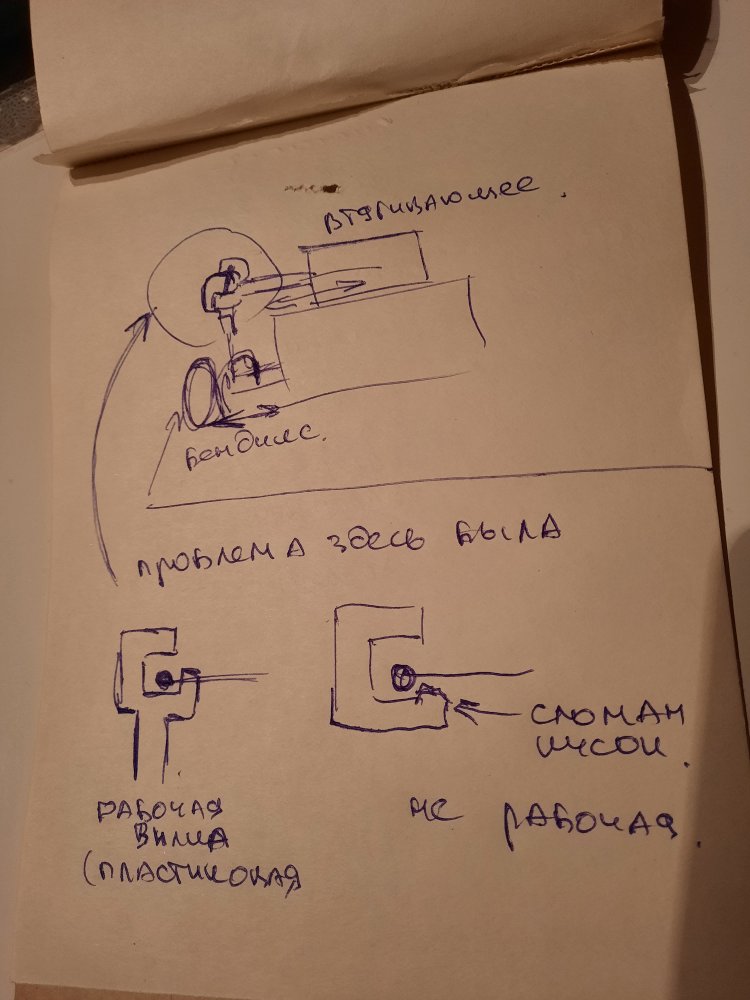 втягивающее.
бендикс.
проблема здесь была
сломан
кусок.
рабочая
вилка
(пластиковая
не рабочая.